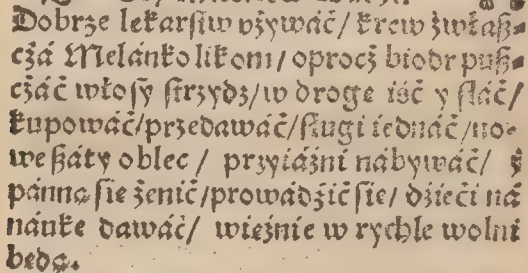 Dobrze lekarstw vżywáć/ krew żwłasz-
cżá Melánkolikom/ oprocż biodr pusz-
cżáć włosy strzydz/ w droge iść y słáć/
kupowáć/przedawáć/sługi iednáć/no-
we száty oblec / przyiáźni nábywáć/ z
pánną sie żenić/prowádźić sie/ dźieci ná
náuke dawáć/ więźnie w rychle wolni
będą.